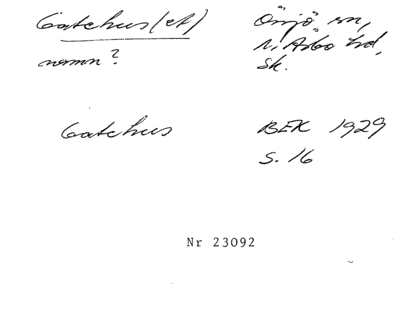 Gatehus(et)
namn?
Önnjö sn,
N. Åsbo hd,
Sk.
Gatehus
BEK 1929
S. 16
Nr 23092